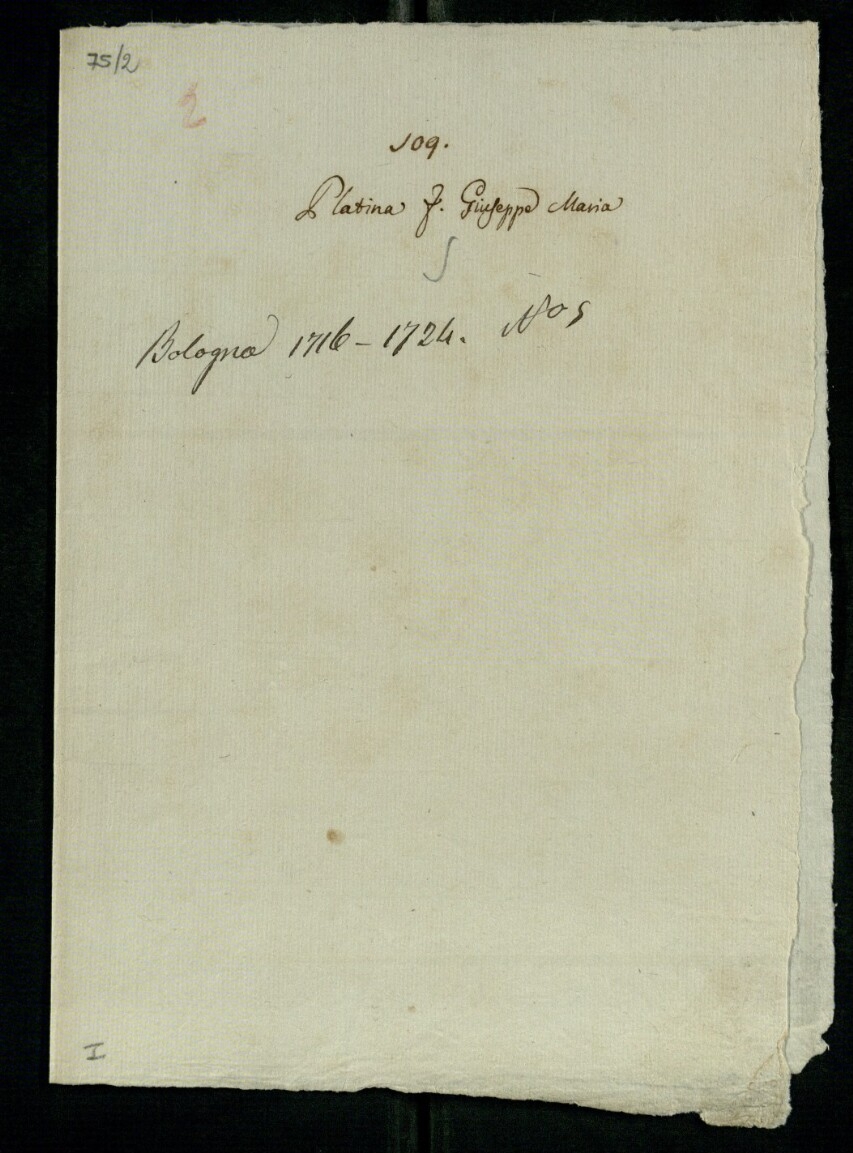 75/2
2
109.
Platina F. Giuseppe Maria
5
Bologna 1716 - 1724. No 5
I